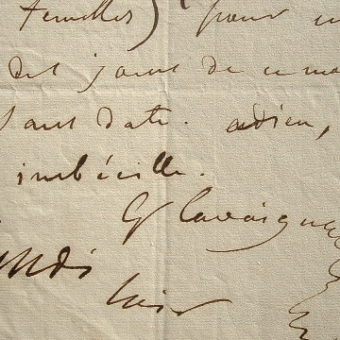 femelles) pour
dit jours de ce
sans date. adieu,
imbécille.
G Cavaignac
soir